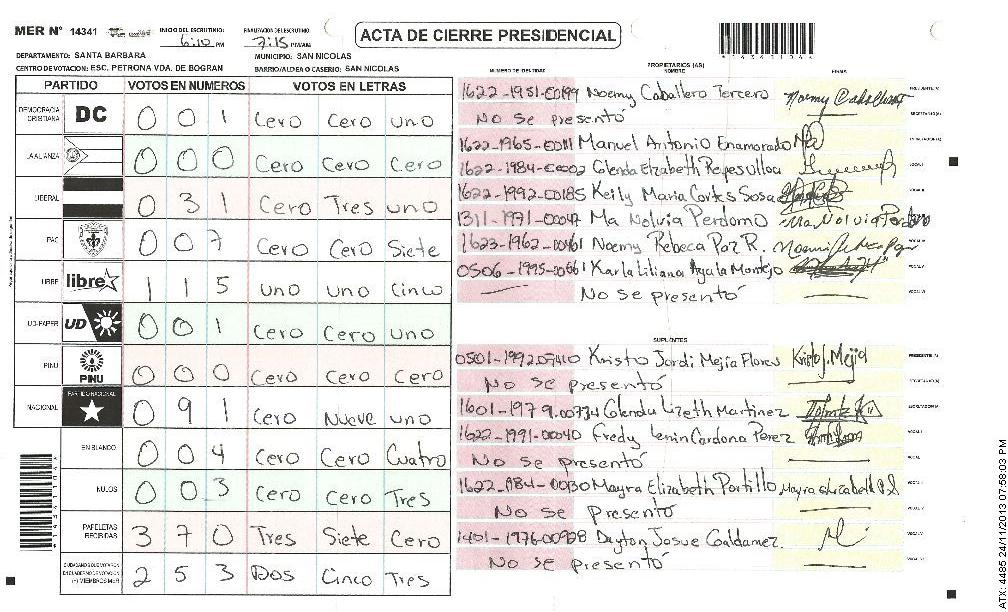 MER Nº 14341
INICIO DEL ESCRUTINIO: 6:10 PM
FINALIZACION DEL ESCRUTINIO: 7:15 PM/AM
ACTA DE CIERRE PRESIDENCIAL
DEPARTAMENTO: SANTA BARBARA
MUNICIPIO: SAN NICOLAS
CENTRO DE VOTACION: ESC. PETRONA VDA. DE BOGRAN
BARRIO/ALDEA O CASERIO: SAN NICOLAS
PARTIDO VOTOS EN NUMEROS VOTOS EN LETRAS
DEMOCRACIA CRISTIANA DC 0 0 1 Cero Cero uno
LA ALIANZA 0 0 0 Cero Cero Cero
LIBERAL 0 3 1 Cero Tres uno
PAC 0 0 7 Cero Cero Siete
LIBRE libre 1 1 5 uno uno Cinco
UD-FAPER UD 0 0 1 Cero Cero uno
PINU PINU 0 0 0 Cero Cero Cero
NACIONAL PARTIDO NACIONAL 0 9 1 Cero Nueve uno
EN BLANCO 0 0 4 Cero Cero Cuatro
NULOS 0 0 3 Cero Cero Tres
PAPELETAS RECIBIDAS 3 7 0 Tres Siete Cero
CIUDADANOS QUE VOTARON EN CUADERNO DE VOTACION (+) MIEMBROS MER 2 5 3 Dos Cinco Tres
PROPIETARIOS (AS)
NUMERO DE IDENTIDAD NOMBRE FIRMA
1622-1951-00199 Noemy Caballero Tercero Noemy Caballero PRESIDENTE (A)
No se presentó SECRETARIO(A)
1622-1965-00111 Manuel Antonio Enamorado ESCRUTADOR (A)
1622-1984-00002 Glenda Elizabeth VOCAL I
1622-1992-00185 Keily Maria Cortes Sosa VOCAL II
1311-1971-00047 Ma Nolvia Perdomo Ma Nolvia Perdomo
1623-1962-00461 Noemy Rebeca Paz R.
0506-1995-00661 Karla Liliana Ayala Montejo VOCAL V
No se presentó VOCAL VI
SUPLENTES
Kristo Jordi Mejia Flores Kristo J. Mejia PRESIDENTE (A)
No se presentó SECRETARIO(A)
1601-1979-00734 Glenda Lizeth Martinez ESCRUTADOR (A)
1622-1991-00040 Fredy Lenin Cardona Perez VOCAL I
No se presentó
Mayra Elizabeth Portillo
No se presentó
1401-1976-00928 Dayton Josue Galdamez
No se presentó
ATX: 4485 24/11/2013 07:58:03 PM